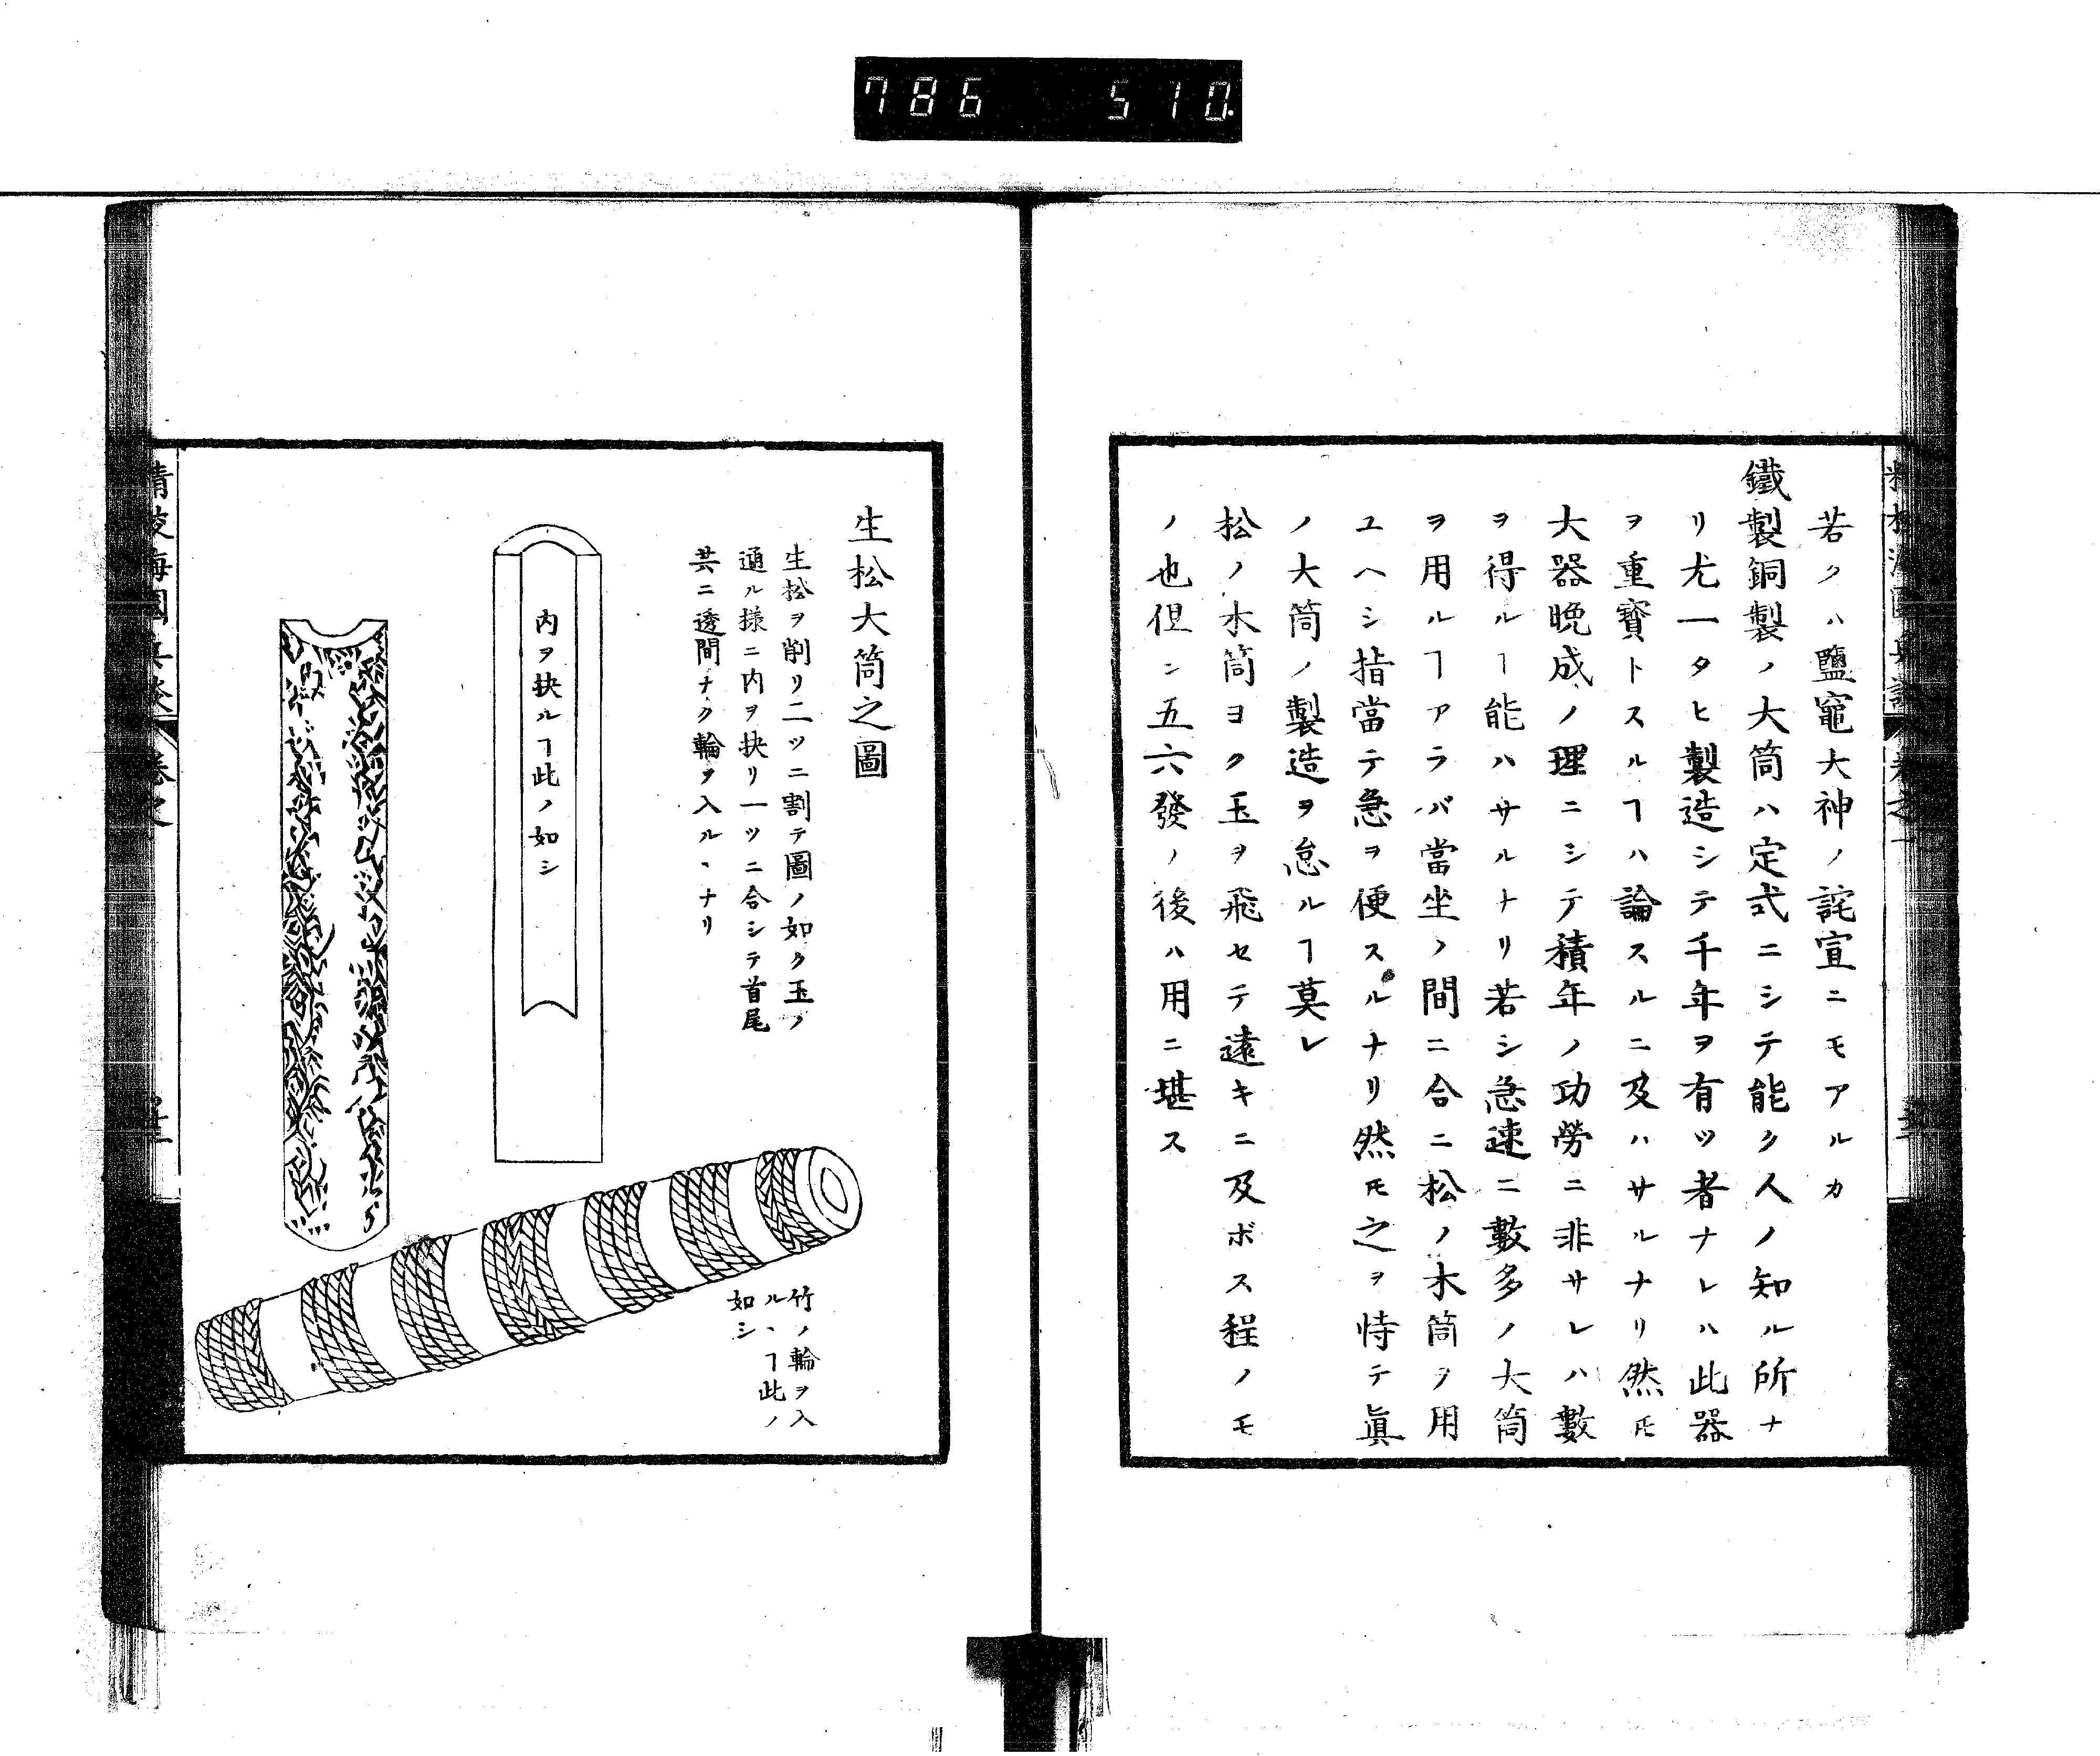 786 510.
若クハ鹽竈大神ノ詫宣ニモアルカ
鐵製銅製ノ大筒ハ定式ニシテ能ク人ノ知ル所ナ
リ尤一タヒ製造シテ千年ヲ有ツ者ナレハ此器
ヲ重寳トスルヿハ論スルニ及ハサルナリ然𪜈
大器晩成ノ理ニシテ積年ノ功勞ニ非サレハ數
ヲ得ルヿ能ハサルナリ若シ急速ニ數多ノ大筒
ヲ用ルヿアラバ當坐ノ間ニ合ニ松ノ木筒ヲ用
ユヘシ指當テ急ヲ便スルナリ然𪜈之ヲ恃テ眞
ノ大筒ノ製造ヲ怠ルヿ莫レ
松ノ木筒ヨク玉ヲ飛セテ遠キニ及ボス程ノモ
ノ也但シ五六發ノ後ハ用ニ堪ス
生松大筒之圖
生松ヲ削リ二ツニ割テ圖ノ如ク玉ノ
通ル様ニ内ヲ抉リ一ツニ合シテ首尾
共ニ透間ナク輪ヲ入ルヽナリ
内ヲ抉ルヿ此ノ如シ
竹ノ輪ヲ入
ルヽヿ此ノ
如シ